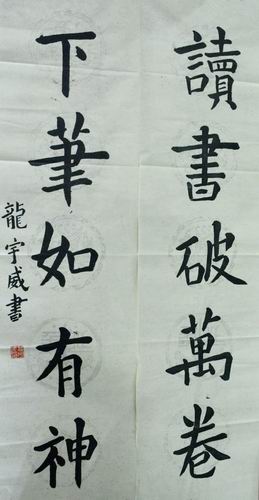 讀書破萬卷
下筆如有神
龍宇威書